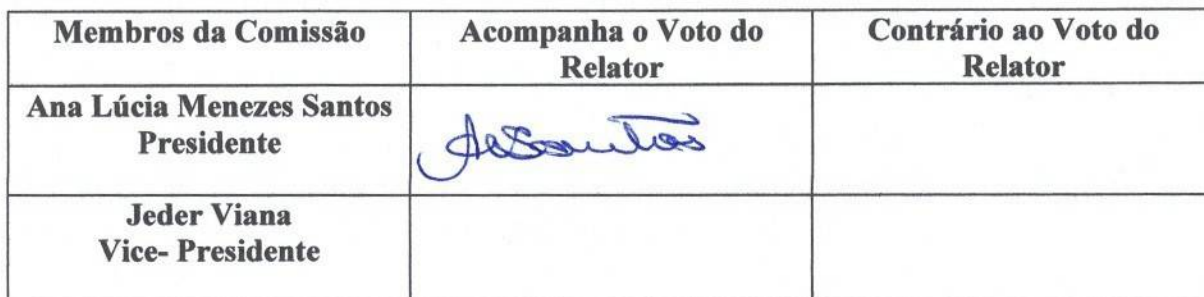 Membros da Comissão
Acompanha o Voto do
Relator
Contrário ao Voto do
Relator
Ana Lúcia Menezes Santos
Presidente
Jeder Viana
Vice- Presidente